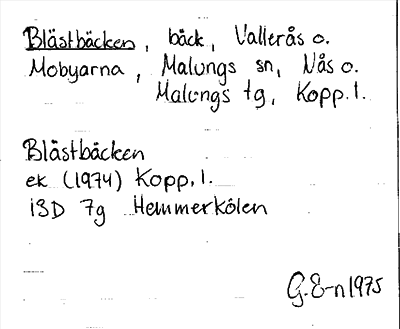 Blästbäcken, bäck, Vallerås o.
Mobyarna, Malungs sn, Nås o.
Malungs tg, Kopp. l.
Blästbäcken
ek (1974) Kopp. l.
13D 7g Hemmerkölen
G. E-n 1975